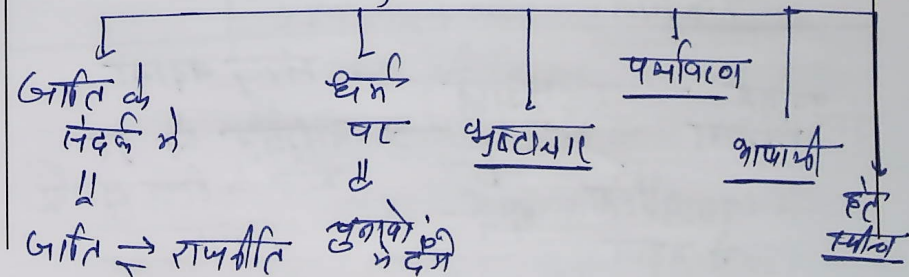 जाति के
संदर्भ मे
जाति ⇌ राजनीति
धर्म
पर
चुनावों
मे दंगे
भ्रष्टाचार
पर्यावरण
भाषायी
हेट
स्पीच